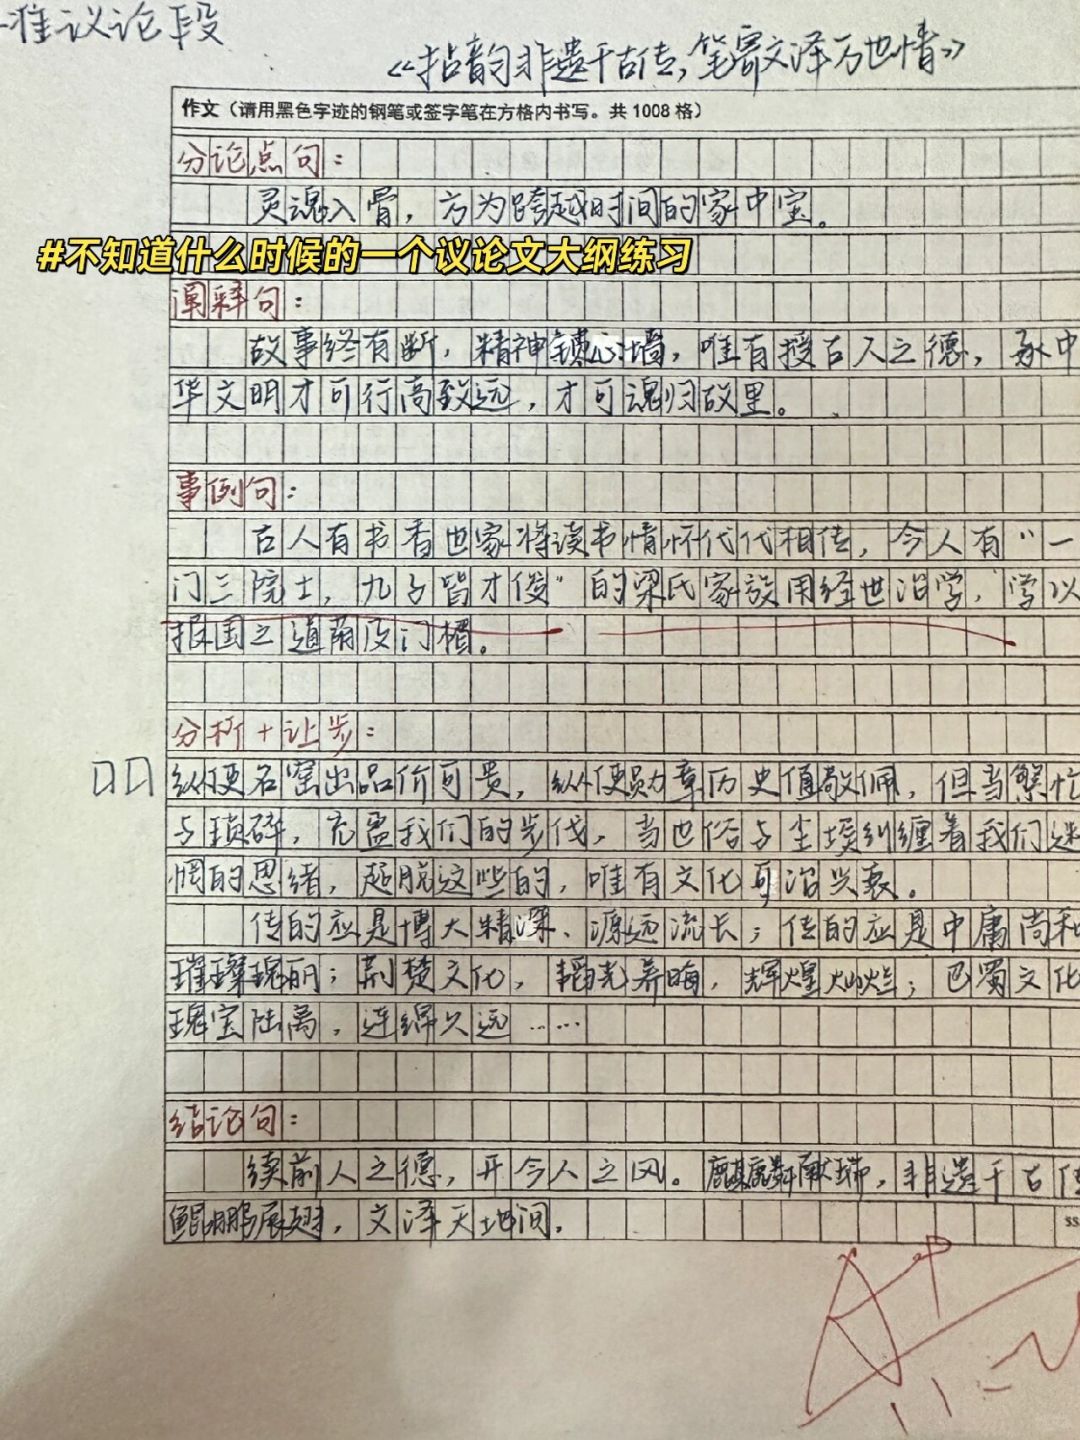 准议论段
《拈韵非遗千古传，笔寄文泽万世情》
作文（请用黑色字迹的钢笔或签字笔在方格内书写。共 1008 格）
分论点句：
灵魂入骨，方为跨越时间的家中宝。
#不知道什么时候的一个议论文大纲练习
阐释句：
故事终有断，精神镇心墙，唯有授古人之德，承中
华文明才可行高致远，才可魂归故里。
事例句：
古人有书香世家将读书情怀代代相传，今人有“一
门三院士，九子皆才俊”的梁氏家族用经世治学，学以
报国之道荫及门楣。
分析+让步：
纵使名窑出品价可贵，纵使勋章历史值敬佩，但当繁忙
与琐碎，充盈我们的步伐，当世俗与尘埃纠缠着我们迷
惘的思绪，超脱这些的，唯有文化可治兴衰。
传的应是博大精深、源远流长；传的应是中庸尚和
璀璨瑰丽；荆楚文化，韬光养晦，辉煌灿烂；巴蜀文化
瑰宝陆离，连绵久远……
结论句：
续前人之德，开今人之风。麒麟献瑞，非遗千古传
鲲鹏展翅，文泽天地间。
SS
A+